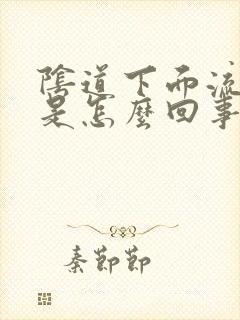 陰道下面流
是怎麼回事
秦節節